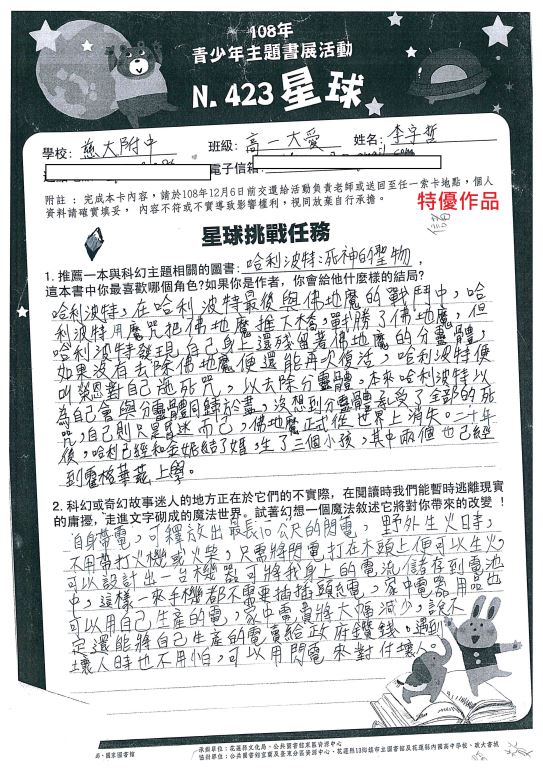 108年
青少年主題書展活動
N. 423 星球
學校: 慈大附中 班級: 高一大愛 姓名: 李宇哲
電子信箱
附註 : 完成本卡內容,請於108年12月6日前交還給活動負責老師或送回至任一索卡地點,個人
資料請確實填妥, 內容不符或不實導致影響權利,視同放棄自行承擔。
特優作品
星球挑戰任務
1. 推薦一本與科幻主題相關的圖書: 哈利波特:死神的聖物,
這本書中你最喜歡哪個角色?如果你是作者,你會給他什麼樣的結局?
哈利波特,在哈利波特最後與佛地魔的戰鬥中,哈
利波特用魔咒把佛地魔推大橋,戰勝了佛地魔,但
哈利波特發現自己身上還殘留著佛地魔的分靈體,
如果沒有去除佛地魔便還能再次復活,哈利波特便
叫榮恩對自己施死咒,以去除分靈體。本來哈利波特以
為自己會與分靈體同歸於盡,沒想到分靈體承受了全部的死
咒,自己則只是昏迷而已,佛地魔正式從世界上消失。二十年
後,哈利已經和金妮結了婚,生了三個小孩,其中兩個也已經
到霍格華茲上學。
2. 科幻或奇幻故事迷人的地方正在於它們的不實際,在閱讀時我們能暫時逃離現實
的庸擾,走進文字砌成的魔法世界。試著幻想一個魔法敘述它將對你帶來的改變!
自身帶電,可釋放出最長10公尺的閃電,野外生火時,
不用帶打火機或火柴,只需將閃電打在木頭上便可以生火,
可以設計出一台機器可將我身上的電流儲存到電池
中,這樣一來手機都不需要插插頭充電,家中電器用品也
可以用自己生產的電,家中電費將大幅減少,說不
定還能將自己生產的電賣給政府賺錢。遇到
壞人時也不用怕,可以用閃電來對付壞人。
國家圖書館
承辦單位:花蓮縣文化局、公共圖書館東區資源中心
協辦單位:公共圖書館宜蘭及臺東分區資源中心、花蓮縣13鄉鎮市立圖書館及花蓮縣內國高中學校、政大書城